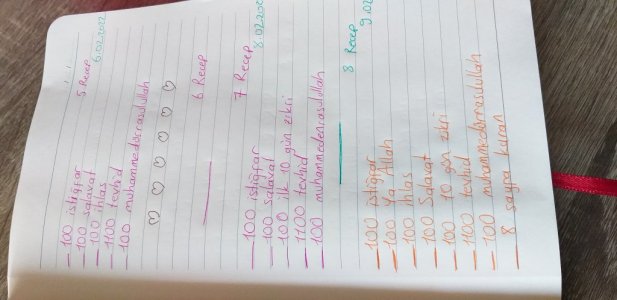 5 Recep
6.02.2022
- 100 istiğfar
- 100 salavat
- 100 ihlas
- 1100 tevhid
- 100 muhammedürrasulullah
6 Recep
7 Recep
8.02.2022
- 100 istiğfar
- 100 Salavat
- 100 ilk 10 gün zikri
- 1100 tevhid
- 100 muhammedenrasulullah
8 Recep
9.02
- 100 istiğfar
- 100 Ya Allah
- 100 ihlas
- 100 Salavat
- 100 10 gün zikri
- 1100 tevhid
- 100 muhammedürrasulullah
- 8 sayfa kuran